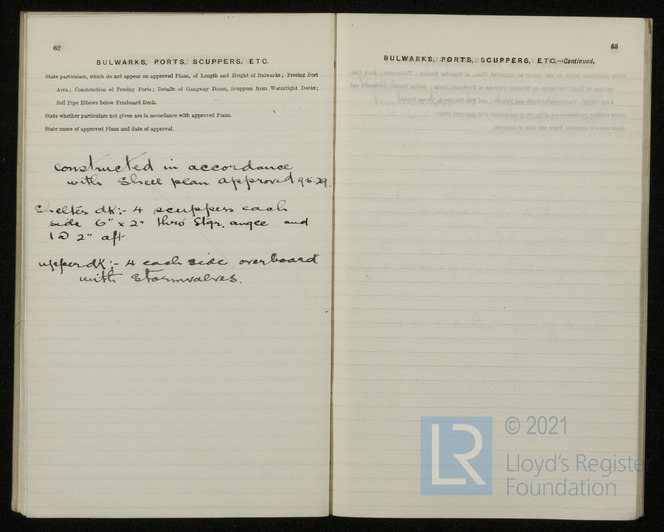 62
BULWARKS, PORTS, SCUPPERS, ETC.
State particulars, which do not appear on approved Plans, of Length and Height of Bulwarks; Freeing Port
Area; Construction of Freeing Ports; Details of Gangway Doors, Scuppers from Watertight Decks;
Soil Pipe Elbows below Freeboard Deck.
State whether particulars not given are in accordance with approved Plans.
State name of approved Plans and date of approval.
Constructed in accordance
with Shell plan approved 9.5.29.
Shelter dk:- 4 scuppers each
side 6" x 2" thro' Stgr. angle and
1 @ 2" aft
upper dk:- 4 each side overboard
with Stormvalves.
63
BULWARKS, PORTS, SCUPPERS, ETC.—Continued.
LR
© 2021
Lloyd's Register
Foundation